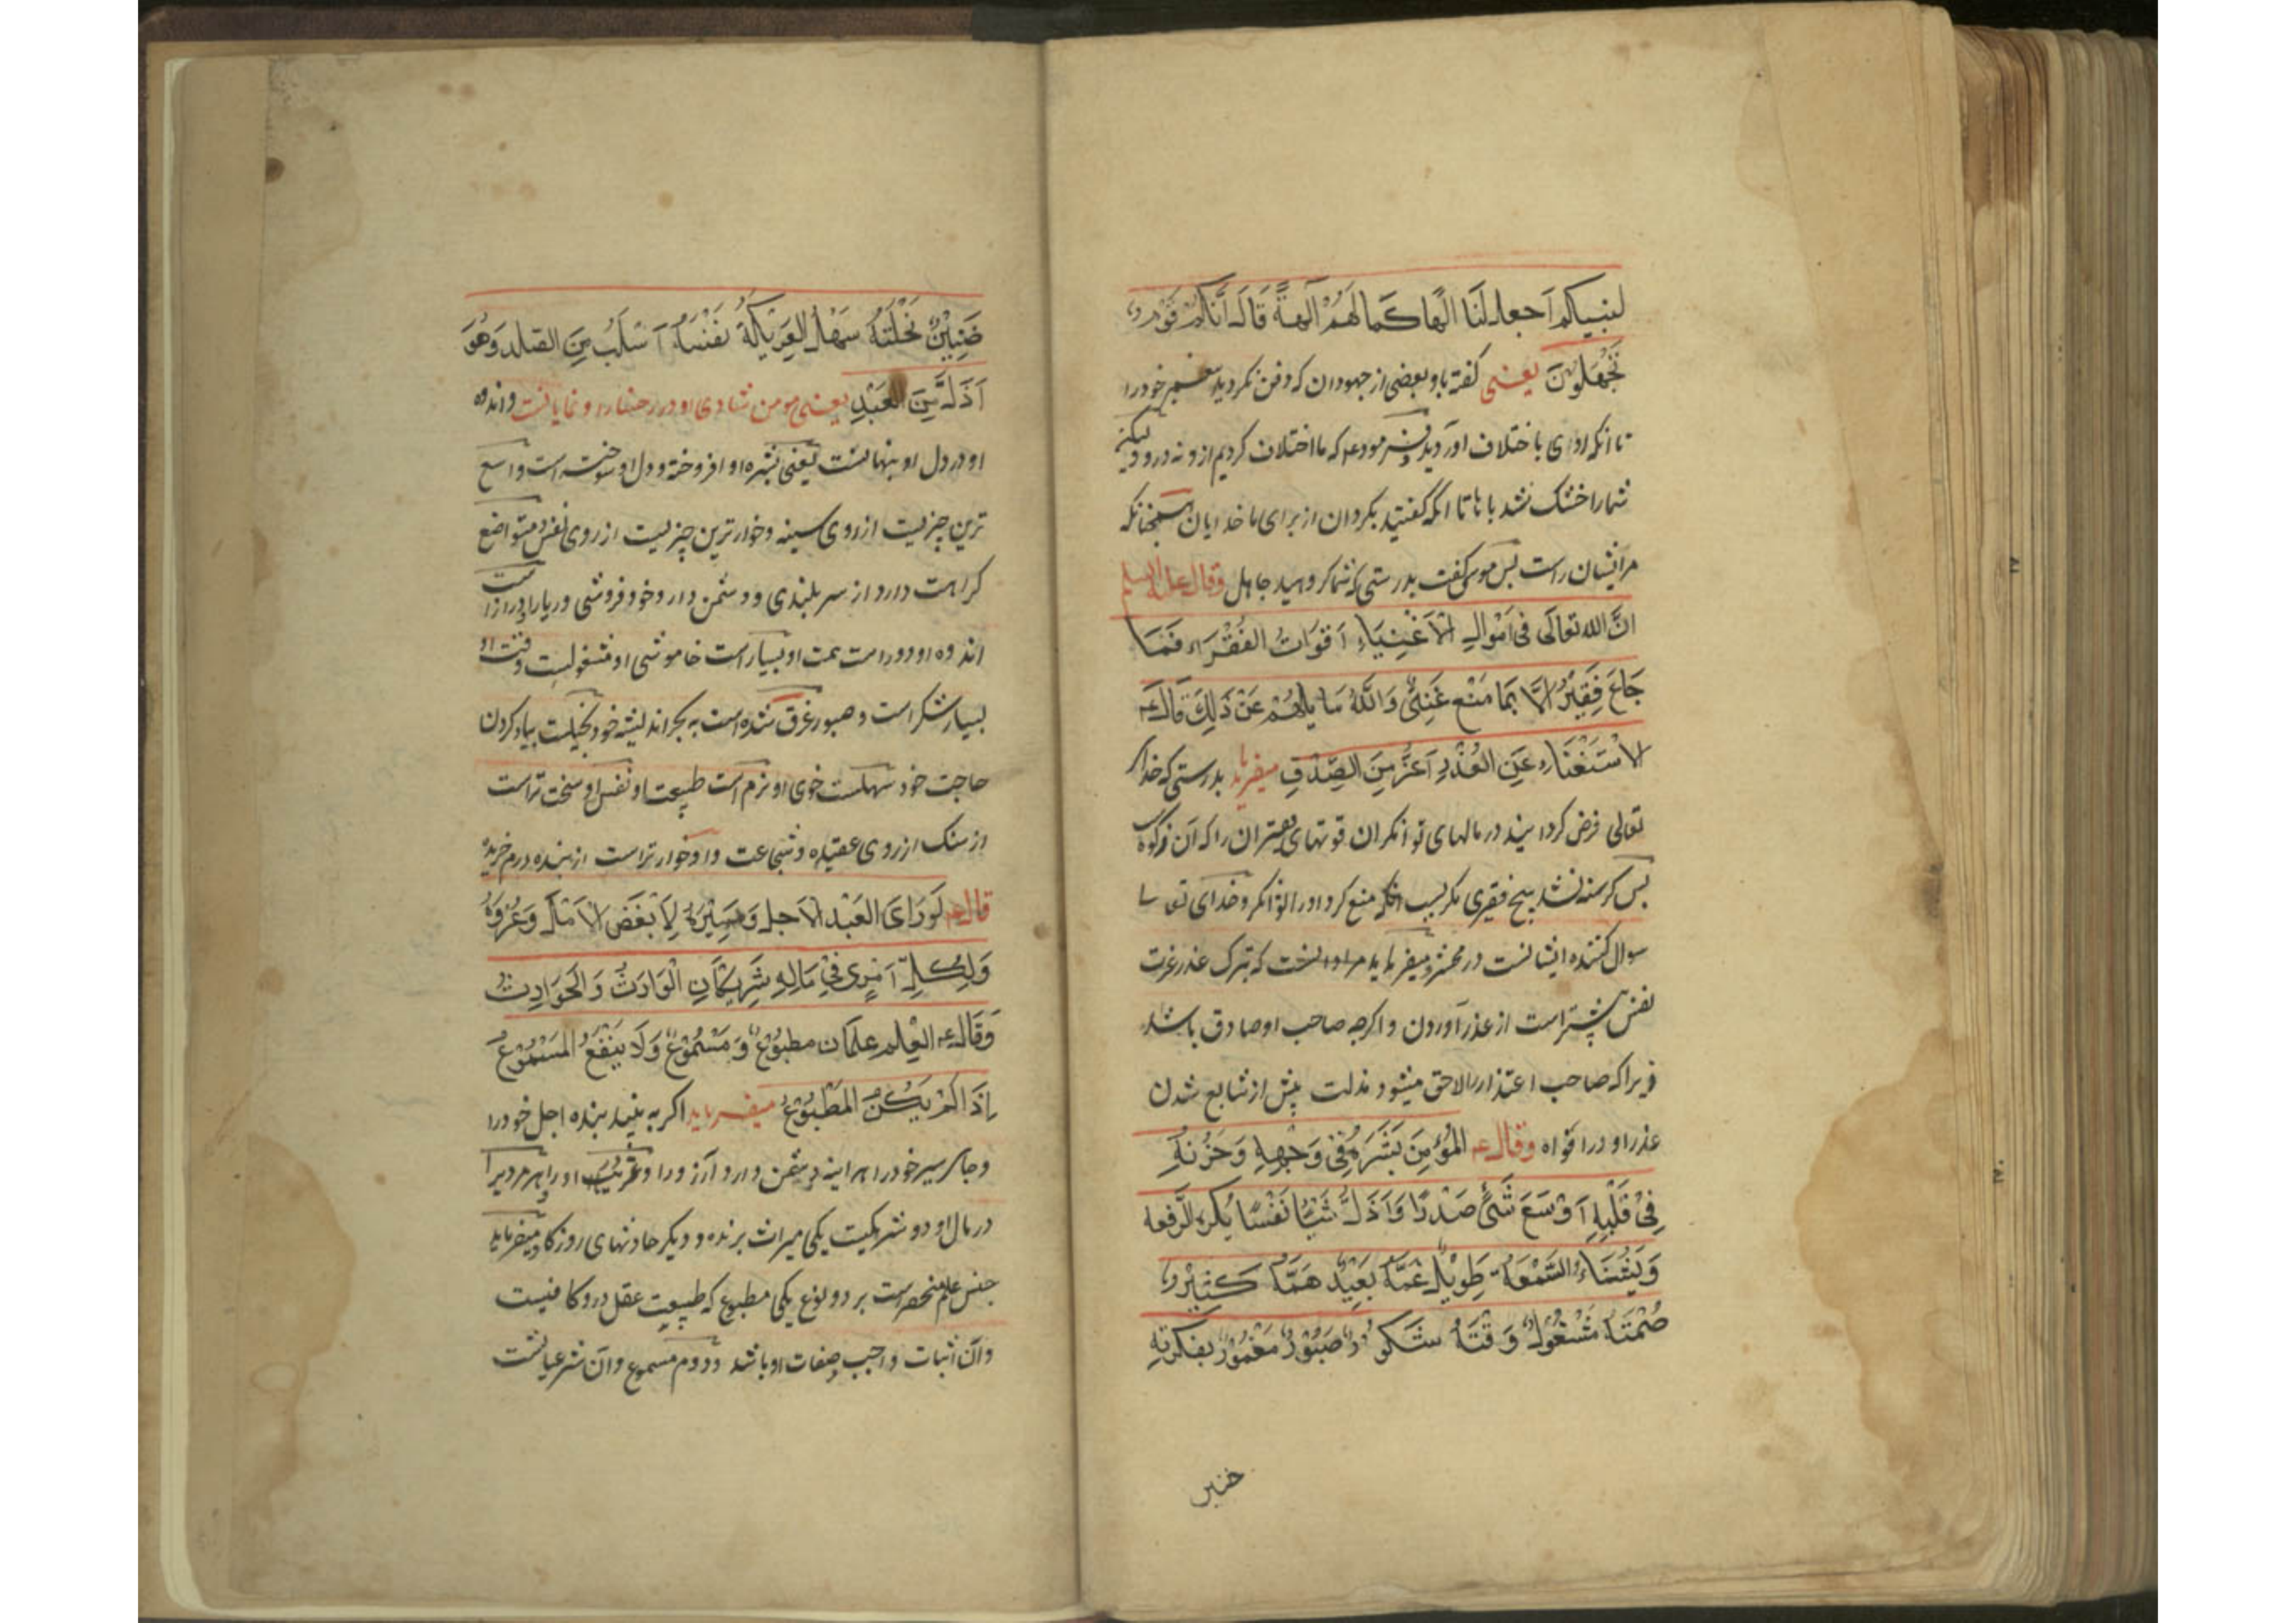 لنبیکم اجعل لنا الها کما لهم آلهة قال انکم قوم
تجهلون یعنی گفته باو بعضی از جهودان که دفن نکردید پیغمبر خود را
تا انکه او ای باختلاف اوردید فرمود ع که ما اختلاف کردیم ازو نه درو ولیکن
شما را خشک نشد باها تا انکه گفتید بکردان از برای ما خدایان همچنانکه
مر ایشان راست پس موسی گفت بدرستی که شما کروهید جاهل وقال علیه السلم
ان الله تعالی فی اموال الاغنیاء اقوات الفقراء فما
جاع فقیر الا بما منع غنی والله سایلهم عن ذلک قال ع
الاستغناء عن العذر اعز من الصدق میفرماید بدرستی که خدای
تعالی فرض کردانید در مالهای توانکران قوتهای فقیران را که آن زکوة
پس کرسنه نشد هیچ فقیری مکر بسبب انکه منع کرد او را توانکر و خدای تعا
سوال کننده ایشانست در محشر و میفرماید مراد انست که ترک عذر عزت
نفس بیشتر است از عذر آوردن و اکرچه صاحب او صادق باشد
زیرا که صاحب اعتذار را لاحق میشود مذلت پیش از شایع شدن
عذر او در افواه وقال ع المؤمن بشره فی وجهه وحزنه
فی قلبه اوسع شئ صدرا واذل شئ نفسا یکره الرفعه
ویشناء السمعة طویل غمه بعید همه کثیر
صمته مشغول وقته شکور صبور مغمور بفکرته
ضنین
ضنین بخلته سهل العریکة نفسه اصلب من الصلد وهو
اذل من العبد یعنی مومن شادی او در رخسارۀ او نمایانست و اندوه
او در دل او پنهانست یعنی بشره او افروخته و دل او سوخته است واسع
ترین چیزیست از روی سینه و خوارترین چیزیست از روی نفس متواضع
کراهت دارد از سربلندی و دشمن دارد خودفروشی و ریا را دراز است
اندوه او دوراست همت او بسیار است خاموشی او مشغولیست وقت او
بسیار شکر است و صبور غرق شده است به بحر اندیشه خود بخیلت بیاد کردن
حاجت خود سهلست خوی او نرم است طبیعت او نفس او سخت تراست
از سنک از روی عقیده و شجاعت و او خوارتراست از بنده درم خریده
قال ع لو رای العبد الاجل ومسیره لابغض الامل وغروره
ولکل امری فی ماله شریکان الوارث والحوادث
وقال ع العلم علمان مطبوع ومسموع ولا ینفع المسموع
اذا لم یکن المطبوع میفرماید اکر به بیند بنده اجل خود را
وجای سیر خود را هراینه دشمن دارد آرزو را و فریب او را و هر مردیرا
در مال او دو شریکیت یکی میراث برنده و دیکر حادثهای روزکار و میفرماید
جنس علم منحصراست بر دو نوع یکی مطبوع که طبیعت عقل درو کافیست
و آن اثبات واجب و صفات او باشد و دوم مسموع و آن شرعیاتست